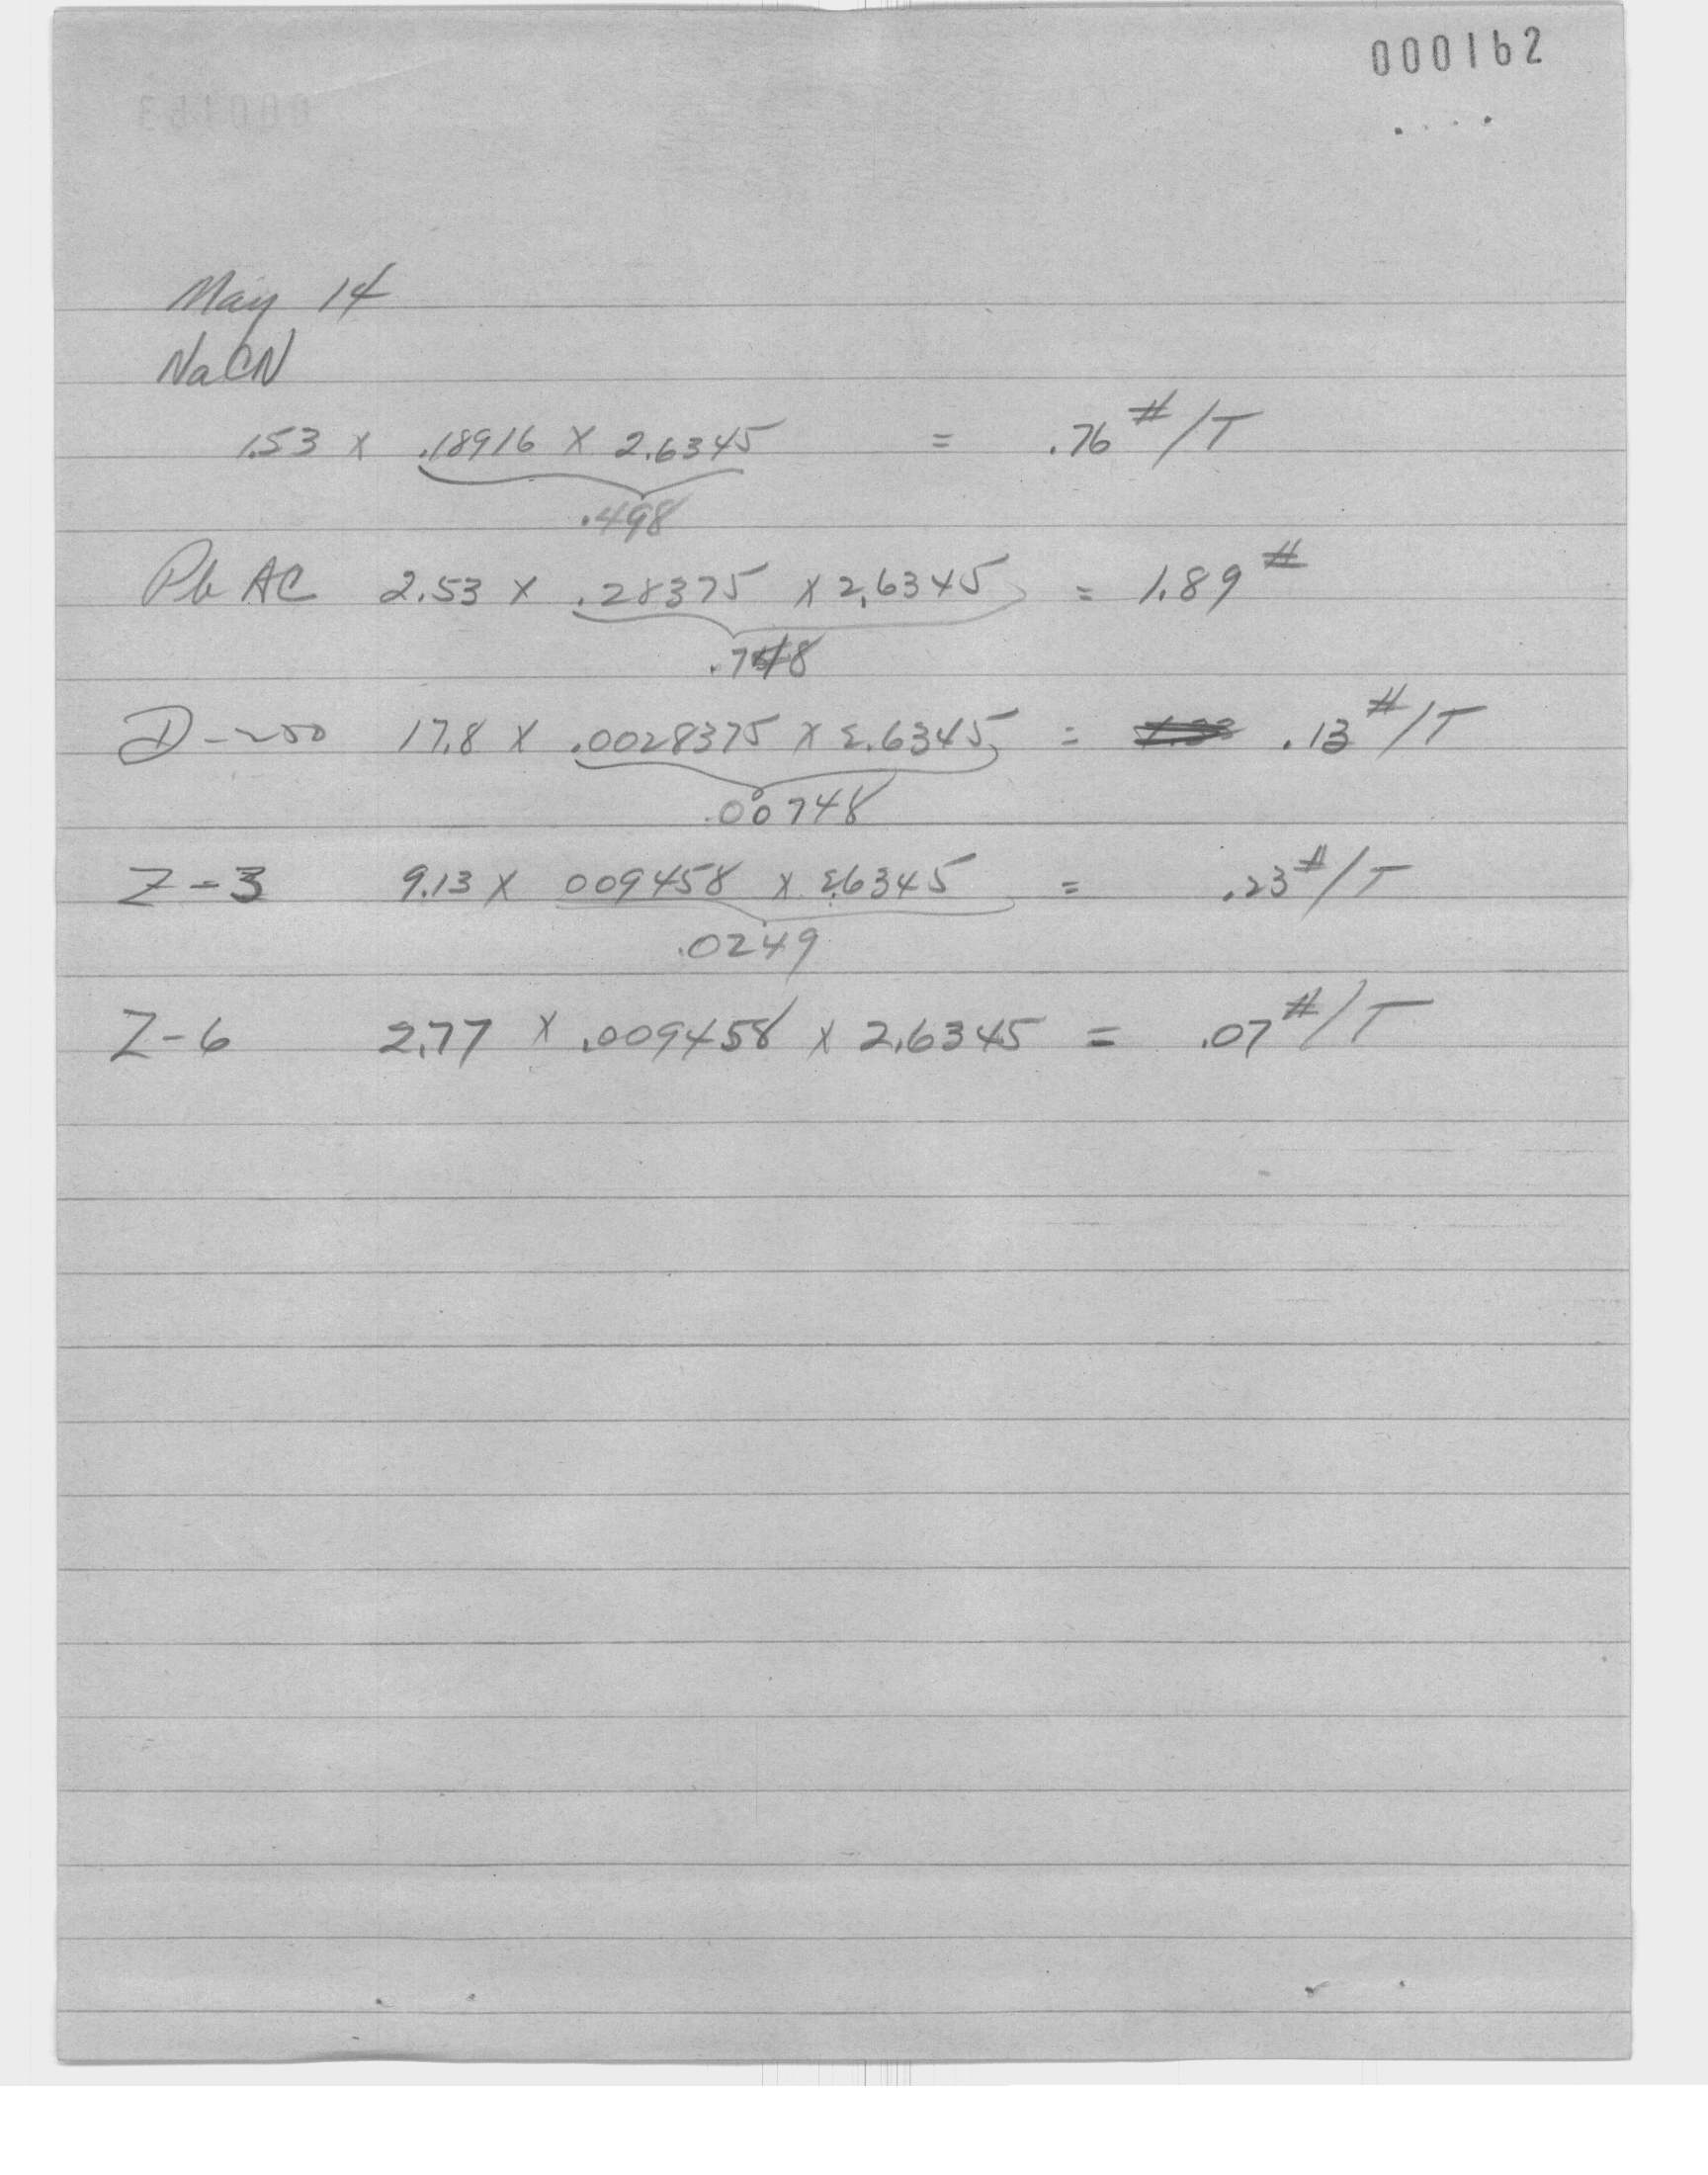 000162
May 14
NaCN
1.53 x .18916 x 2.6345 = .76 #/T
.498
Pb AC 2.53 x .28375 x 2.6345 = 1.89 #
.748
D-250 17.8 x .0028375 x 2.6345 = .13 #/T
.00748
Z-3 9.13 x 009458 x 2.6345 = .23 #/T
.0249
Z-6 2.77 x .009458 x 2.6345 = .07 #/T